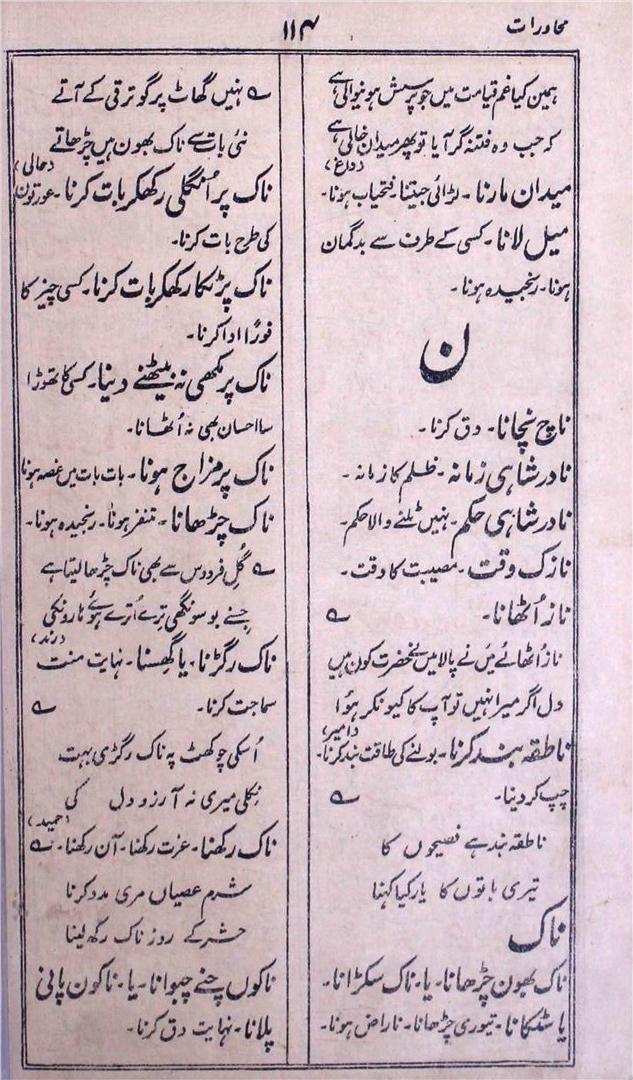 محاورات
۱۱۴
ہمین کیا غم قیامت میں جو پرسش ہونیوالی ہے
کہ جب وہ فتنہ گر آیا تو پھر میدان خالی ہے
(داغ)
میدان مارنا۔ لڑائی جیتنا۔ فتحیاب ہونا۔
میل لانا۔ کسی کے طرف سے بدگمان
ہونا۔ رنجیدہ ہونا۔
ن
ناچ نچانا۔ دق کرنا۔
نادر شاہی زمانہ۔ ظلم کا زمانہ۔
نادر شاہی حکم۔ نہیں ٹلنے والا حکم۔
نازک وقت۔ مصیبت کا وقت۔
ناز اُٹھانا۔ ؎
ناز اُٹھائے میں نے پالا میں نے حضرت کون ہیں
دل اگر میرا نہیں تو آپ کا کیونکر ہوُا
(امیر)
ناطقہ بند کرنا۔ بولنے کی طاقت بند کرنا۔
چپ کر دینا۔ ؎
ناطقہ بند ہے فصیحوں کا
تیری باتوں کا یار کیا کہنا
ناک
ناک بھون چڑھانا۔ یا۔ ناک سکڑانا۔
یا سٹکانا۔ تیوری چڑھانا۔ ناراض ہونا۔
؎ نہیں گھاٹ پر گو ترقی کے آتے
نئی بات سے ناک بھون ہیں چڑھاتے
(حالی)
ناک پر اُنگلی رکھکر بات کرنا۔ عورتون
کی طرح بات کرنا۔
ناک پر ٹکا رکھکر بات کرنا۔ کسی چیز کا
فورًا ادا کرنا۔
ناک پر مکھی نہ بیٹھنے دینا۔ کسی کا تھوڑا
سا احسان بھی نہ اُٹھانا۔
ناک پر مزاج ہونا۔ بات بات میں غصہ ہونا
ناک چڑھانا۔ متنفر ہونا۔ رنجیدہ ہونا۔
؎ گُلِ فردوس سے بھی ناک چڑھا لیتا ہے
جسنے بو سونگھی ترے اُترے ہوئے ہارونکی
(رند)
ناک رگڑنا۔ یا گھسنا۔ نہایت منت
سماجت کرنا۔ ؎
اُسکی چوکھٹ پہ ناک رگڑی بہت
نکلی میری نہ آرزو دل کی
(حمید)
ناک رکھنا۔ عزت رکھنا۔ آن رکھنا۔ ؎
شرم عصیاں مری مدد کرنا
حشر کے روز ناک رکھ لینا
ناکوں چنے چبوانا۔ یا۔ ناکون پانی
پلانا۔ نہایت دق کرنا۔